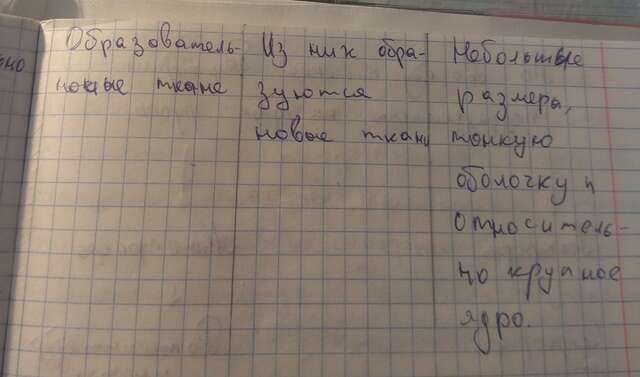 ьно
Образователь-
ноные ткане
Из них обра-
зуются
новые ткани
Небольшые
размеры,
тонкую
оболочку и
относитель-
но крупное
ядро.